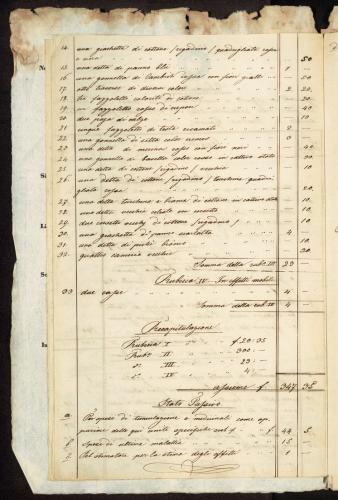 14. una giachetta di cottone /rigadino/ quadrigliato rossa
e nera " 50
15. una detta di panno bleu 1 "
16. una gonnella di Cambrik rossa con fiori gialli " 50
17. otto traverse di diversi colori 2 20
18. tre fazzoletti colorati di cottone " 20
19. un fazzoletto rosso " 40
20. due paja di calze " 10
21. cinque fazzoletti di testa ricamati 2
22. una gonnella di seta color nero 3
23. una detta rossa con fiori neri " 40
24. una gonnella color rosso in cattivo stato " 30
25. una detta di cottone /rigadino/ vecchia " 10
26. una detta di cottone /rigadino/ turchina quadri-
gliata rossa " 20
27. una detta turchina e bianca di cottone in cattivo stato " 10
28. una detta vecchia celeste " 10
29. due corsetti di cottone /rigadino/ " 10
30. una giachetta di panno scarlatto 4 "
31. una detta bianca " 10
32. quattro camicie vecchie " 30
Somma della rubr. III 23 "
Rubrica IV. In effetti mobili
33. due casse 4 "
Somma della rub. IV 4 "
Recapitulazione
Rubrica I f 20:35
Rub. II " 300:-
d. III " 23:-
d. IV " 4:-
assieme f 347 35
Stato Passivo
a. Per spese di tumulazione e medicinali come ap-
parisce dalle qui unite specifiche f 44 5
b. Spese di ultima malattia " 15 -
c. Al stimatore per la stima degli effetti " 1 -